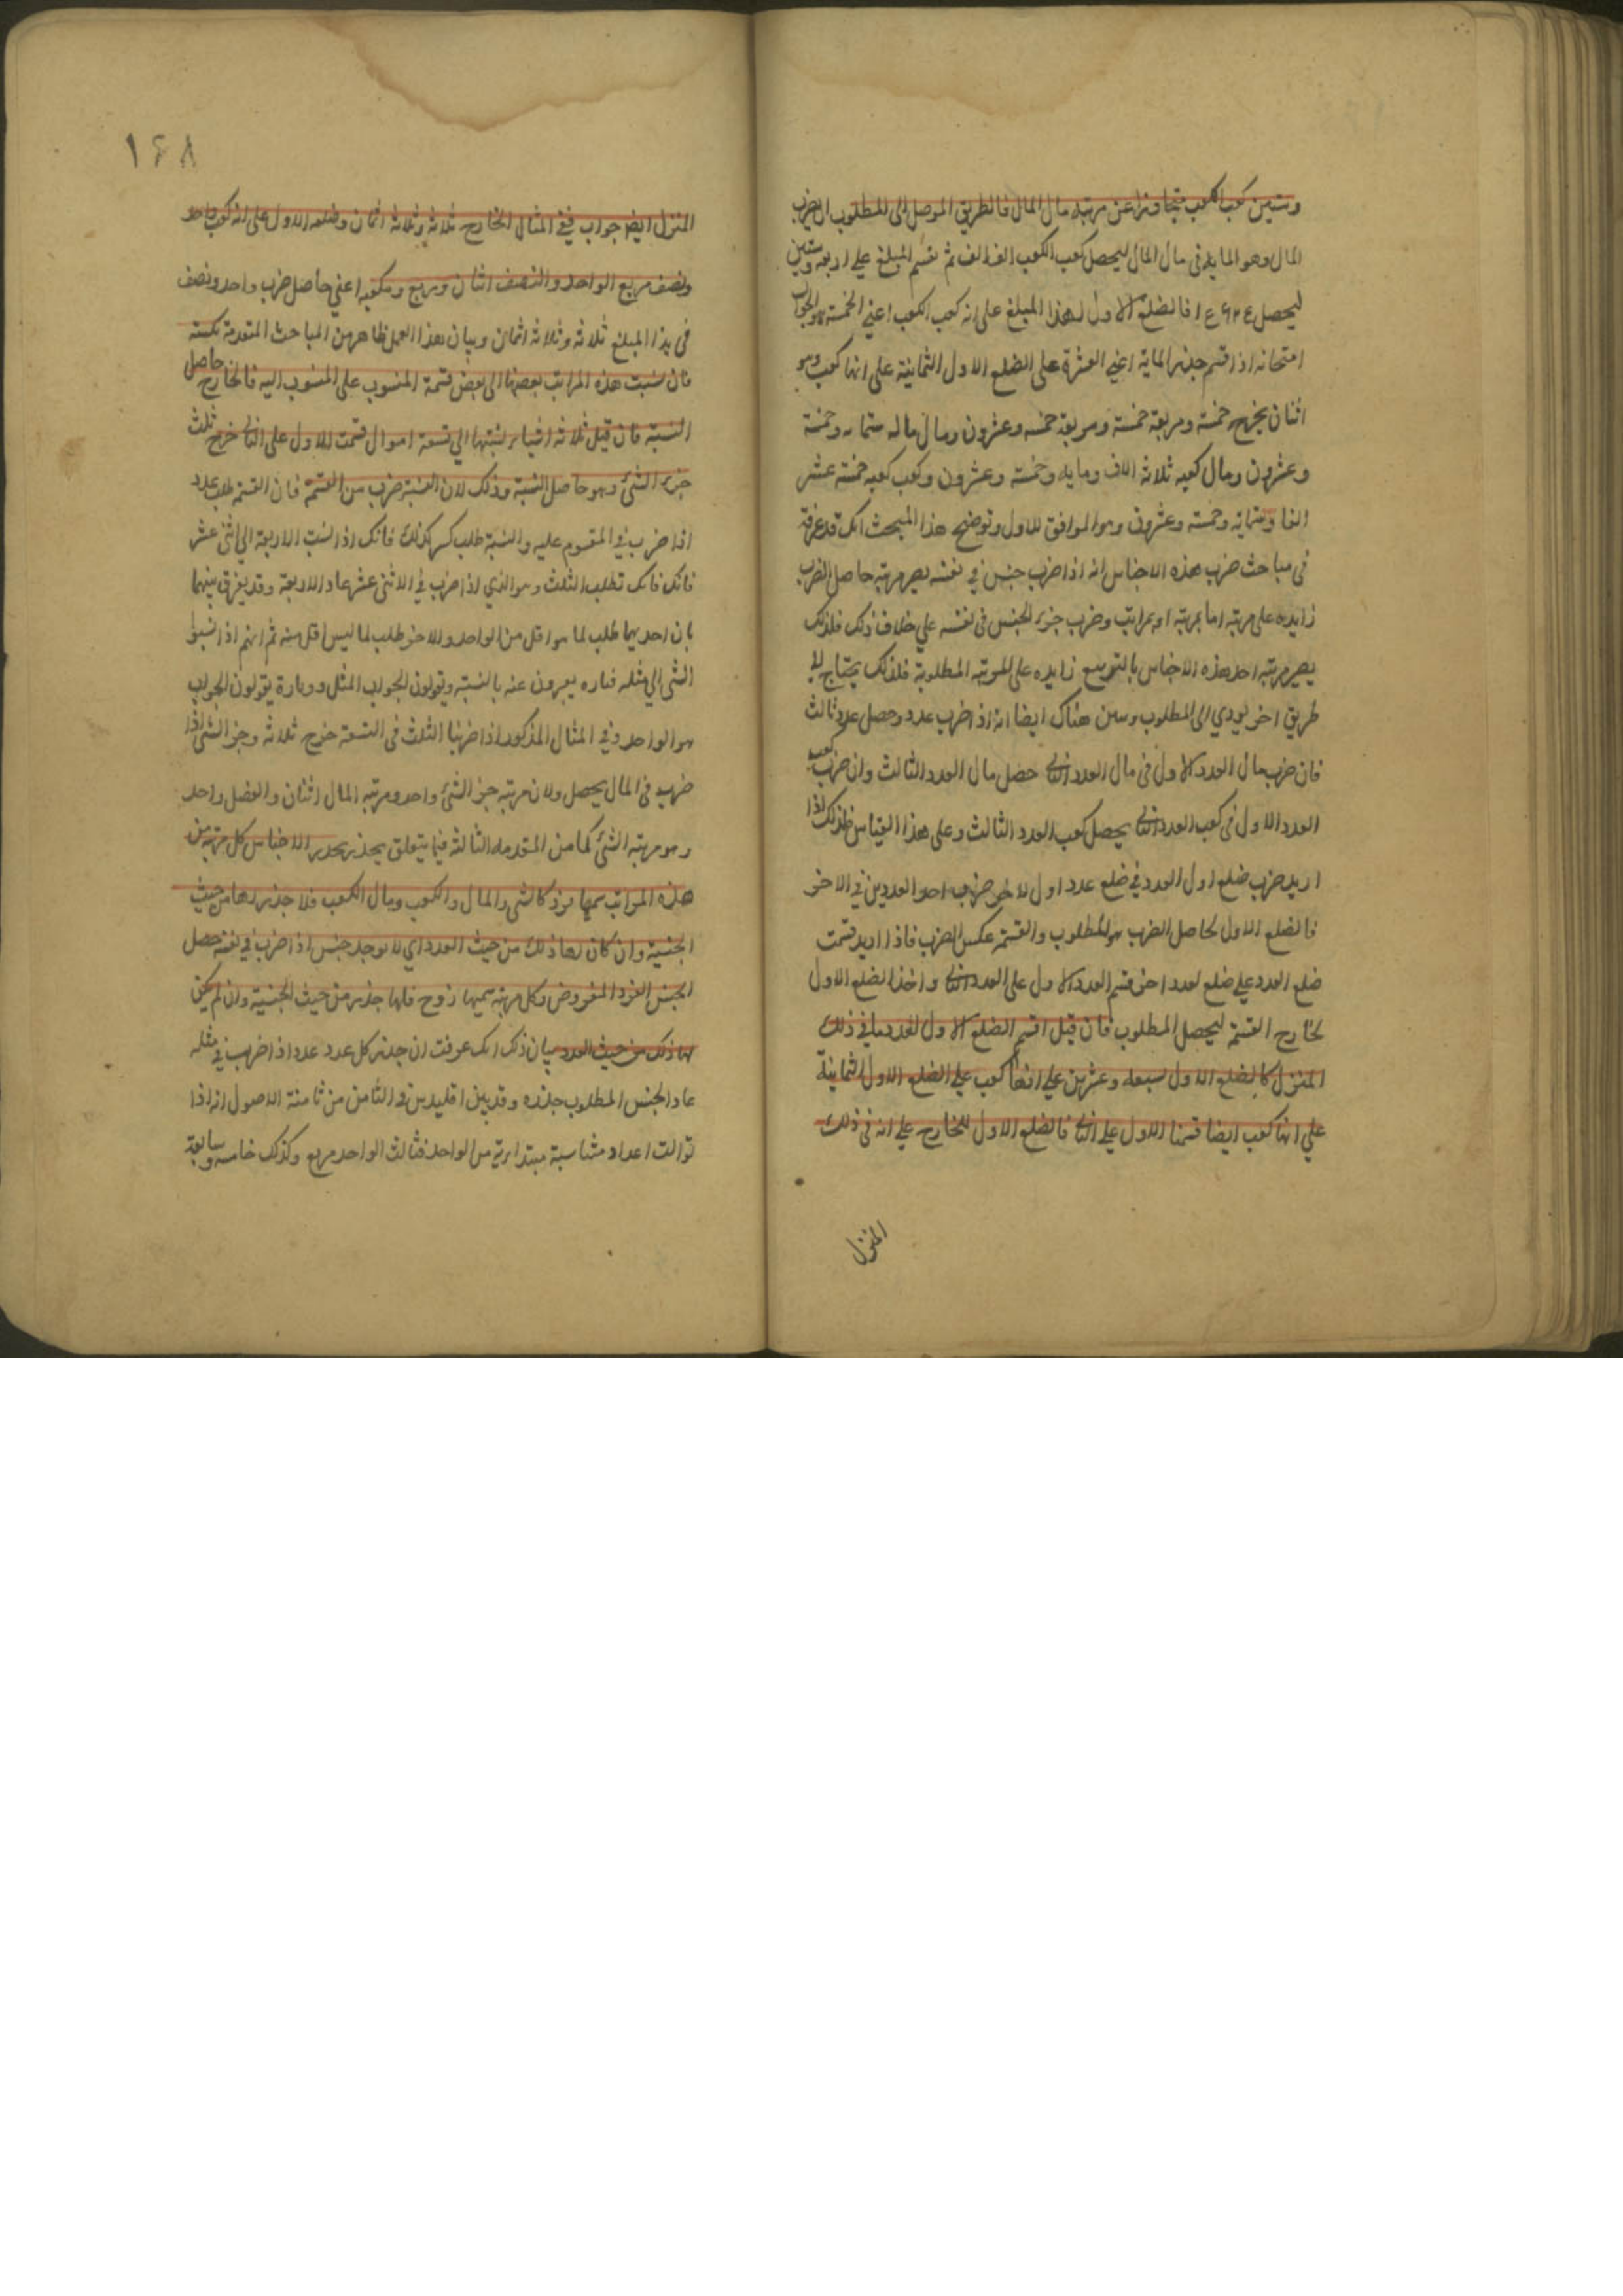 وستين كعب الكعب متجاوزا عن مرتبة مال المال فالطريق الموصل الى المطلوب ان يضرب
المال وهو المايه في مال المال ليحصل كعب الكعب الف الف ثم نقسم المبلغ علي اربعة وستين
ليحصل فالضلع الاول لهذا المبلغ على انه كعب الكعب اعني الخمسة هو الجواب
امتحانه اذا قسم جذر الماية اعني العشرة على الضلع الاول الثمانية على انها كعب وهو
اثنان يخرج خمسة ومربعة خمسة وعشرون ومال ماله ستمايه وخمسة
وعشرون ومال كعبه ثلاثة الاف ومايه وخمسة وعشرون وكعب كعبه خمسة عشر
الفا وستماية وخمسة وعشرون وهو الموافق للاول وتوضيح هذا المبحث انك قد عرفت
في مباحث ضرب هذه الاجناس انه اذا ضرب جنس في نفسه يصير مرتبه حاصل الضرب
زايده على مرتبه اما بمرتبه او بمراتب وضرب جزء الجنس في نفسه علي خلاف ذلك فلذلك
يصير مرتبه احد هذه الاجناس بالتربيع زايده على المرتبه المطلوبة فلذلك يحتاج الي
طريق اخر يودي الى المطلوب وبين هناك ايضا انه اذا ضرب عدد وحصل عدد ثالث
فان ضرب مال العدد الاول في مال العدد الثاني حصل مال العدد الثالث وان ضرب كعب
العدد الاول في كعب العدد الثاني يحصل كعب العدد الثالث وعلى هذا القياس فلذلك اذا
اريد ضرب ضلع اول العدد في ضلع عدد اول لاخر ضرب احد العددين في الاخر
فالضلع الاول لحاصل الضرب هو المطلوب والقسمة عكس الضرب فاذا اريد قسمت
ضلع العدد علي ضلع لعدد اخر قسم العدد الاول على العدد الثاني واخذ الضلع الاول
لخارج القسمة ليحصل المطلوب فان قيل اقسم الضلع الاول لعدد ما في ذلك
المنزل كالضلع الاول سبعه وعشرين علي انها كعب علي الضلع الاول الثمانية
علي انها كعب ايضا قسمنا الاول علي الثاني فالضلع الاول للخارج علي انه في ذلك
المنزل
١٦٨
المنزل ايضا جواب ففي المثال الخارج ثلاثة وثلاثة اثمان وضلعه الاول على انه كعب واحد
ونصف مربع الواحد والنصف اثنان وربع ومكعبه اعني حاصل ضرب واحد ونصف
في هذا المبلغ ثلاثة وثلاثة اثمان وبيان هذا العمل ظاهر من المباحث المتقدمة
فان نسبت هذه المراتب بعضها الى بعض قسمة المنسوب على المنسوب اليه فالخارج حاصل
النسبة فان قيل ثلاثة اشياء نسبتها الي تسعة اموال قسمت الاول على الثاني خرج ثلث
جزء الشئ وهو حاصل النسبة وذلك لان النسبة ضرب من القسمة فان القسمة طلب عدد
اذا ضرب في المقسوم عليه والنسبة طلب كسر كذلك فانك اذا نسبت الاربعة الى اثنى عشر
فانك فانك تطلب الثلث وهو الذي اذا ضرب في الاثنى عشر عاد الاربعة وقد يفرق بينهما
بان احديهما طلب لما هو اقل من الواحد والاخر طلب لما ليس اقل منه ثم انهم اذا نسبوا
الشئ الي مثله فتاره يعبرون عنه بالنسبة ويقولون الجواب المثل وتارة يقولون الجواب
هو الواحد وفي المثال المذكور اذا ضربنا الثلث في التسعة خرج ثلاثة وجزء الشئ اذا
ضرب في المال يحصل ولان مرتبه جزء الشئ واحد ومرتبه المال اثنان والفضل واحد
وهو مرتبه الشئ كما من المقدمه الثالثة فيما يتعلق بجذر الاجناس كل مرتبه من
هذه المراتب سميها فرد كالشئ والمال والكعب ومال الكعب فلا جذر لها من حيث
الجنسية وان كان لها ذلك من حيث العدد اي لا يوجد جنس اذا ضرب في نفسه حصل
الجنس الفرد المفروض وكل مرتبه سميها زوج فلها جذر من حيث الجنسية وان لم يكن
لها ذلك من حيث العدد بيان ذلك انك عرفت ان جذر كل عدد عدد اذا ضرب في مثله
عاد الجنس المطلوب جذره وقد بين اقليدس في الثامن من ثامنة الاصول انه اذا
توالت اعداد متناسبة مبتداية من الواحد فثالث الواحد مربع وكذلك خامسه وسابعه